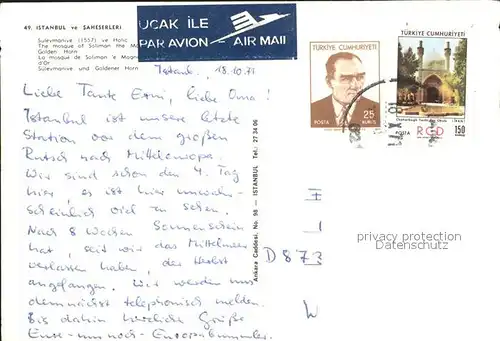 49. ISTANBUL ve ŞAHESERLERİ
Süleymaniye (1557) ve Haliç
The mosque of Soliman the Ma
Golden Horn
La mosqué de Soliman 'e Magn
d'Or
Süleymaniye und Goldener Horn
UÇAK İLE
PAR AVION - AIR MAIL
TÜRKİYE CUMHURİYETİ
25
KURUŞ
POSTA
TÜRKİYE CUMHURİYETİ
POSTA RCD 150
Istanbul, 18.10.71
Liebe Tante Erni, liebe Oma!
Istanbul ist unsere letzte
Station vor dem großen
Rutsch nach Mitteleuropa.
Wir sind schon den 4. Tag
hier, es ist hier unwahr-
scheinlich viel zu sehen.
Nach 8 Wochen Sonnenschein
hat, seit wir das Mittelmeer
verlassen haben, der Herbst
angefangen. Wir werden uns
demnächst telephonisch melden.
Bis dahin herzliche Grüße
Eure - uns - noch - Europabummler.
Ankara Caddesi, No. 98 — ISTANBUL Tel.: 27 34 06
D 873
privacy protection
Datenschutz